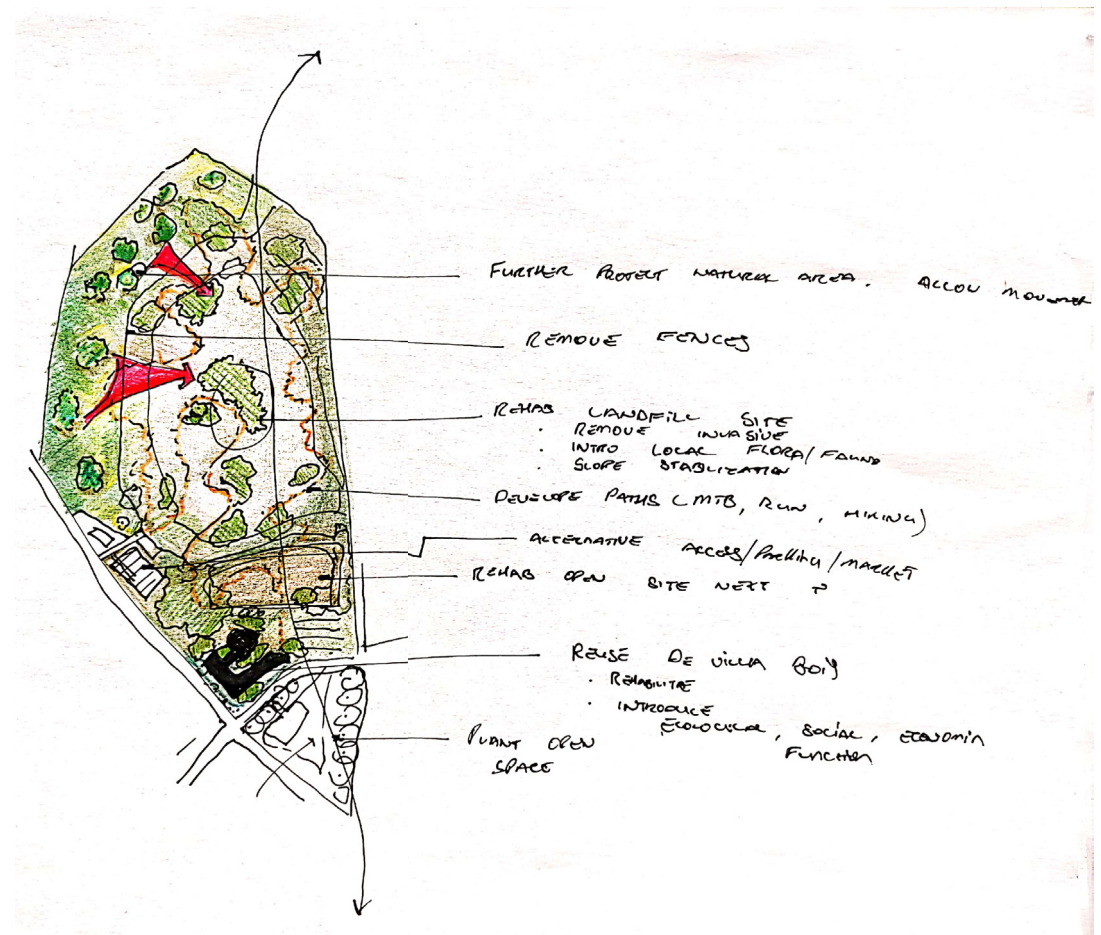 FURTHER PROTECT NATURAL AREA. ALLOW
REMOVE FENCES
REHAB LANDFILL SITE
· REMOVE INVASIVE
· INTRO LOCAL FLORA/FAUNA
· SLOPE STABLIZATION
DEVELOPE PATHS (MTB, RUN, HIKING)
ALTERNATIVE ACCESS/PARKING/MARKET
REHAB OPEN SITE NEXT
REUSE DE VILLA
· REHABILITAE
· INTRODUCE
ECOLOGICAL, SOCIAL, ECONOMIN
FUNCTION
PLANT OPEN
SPACE